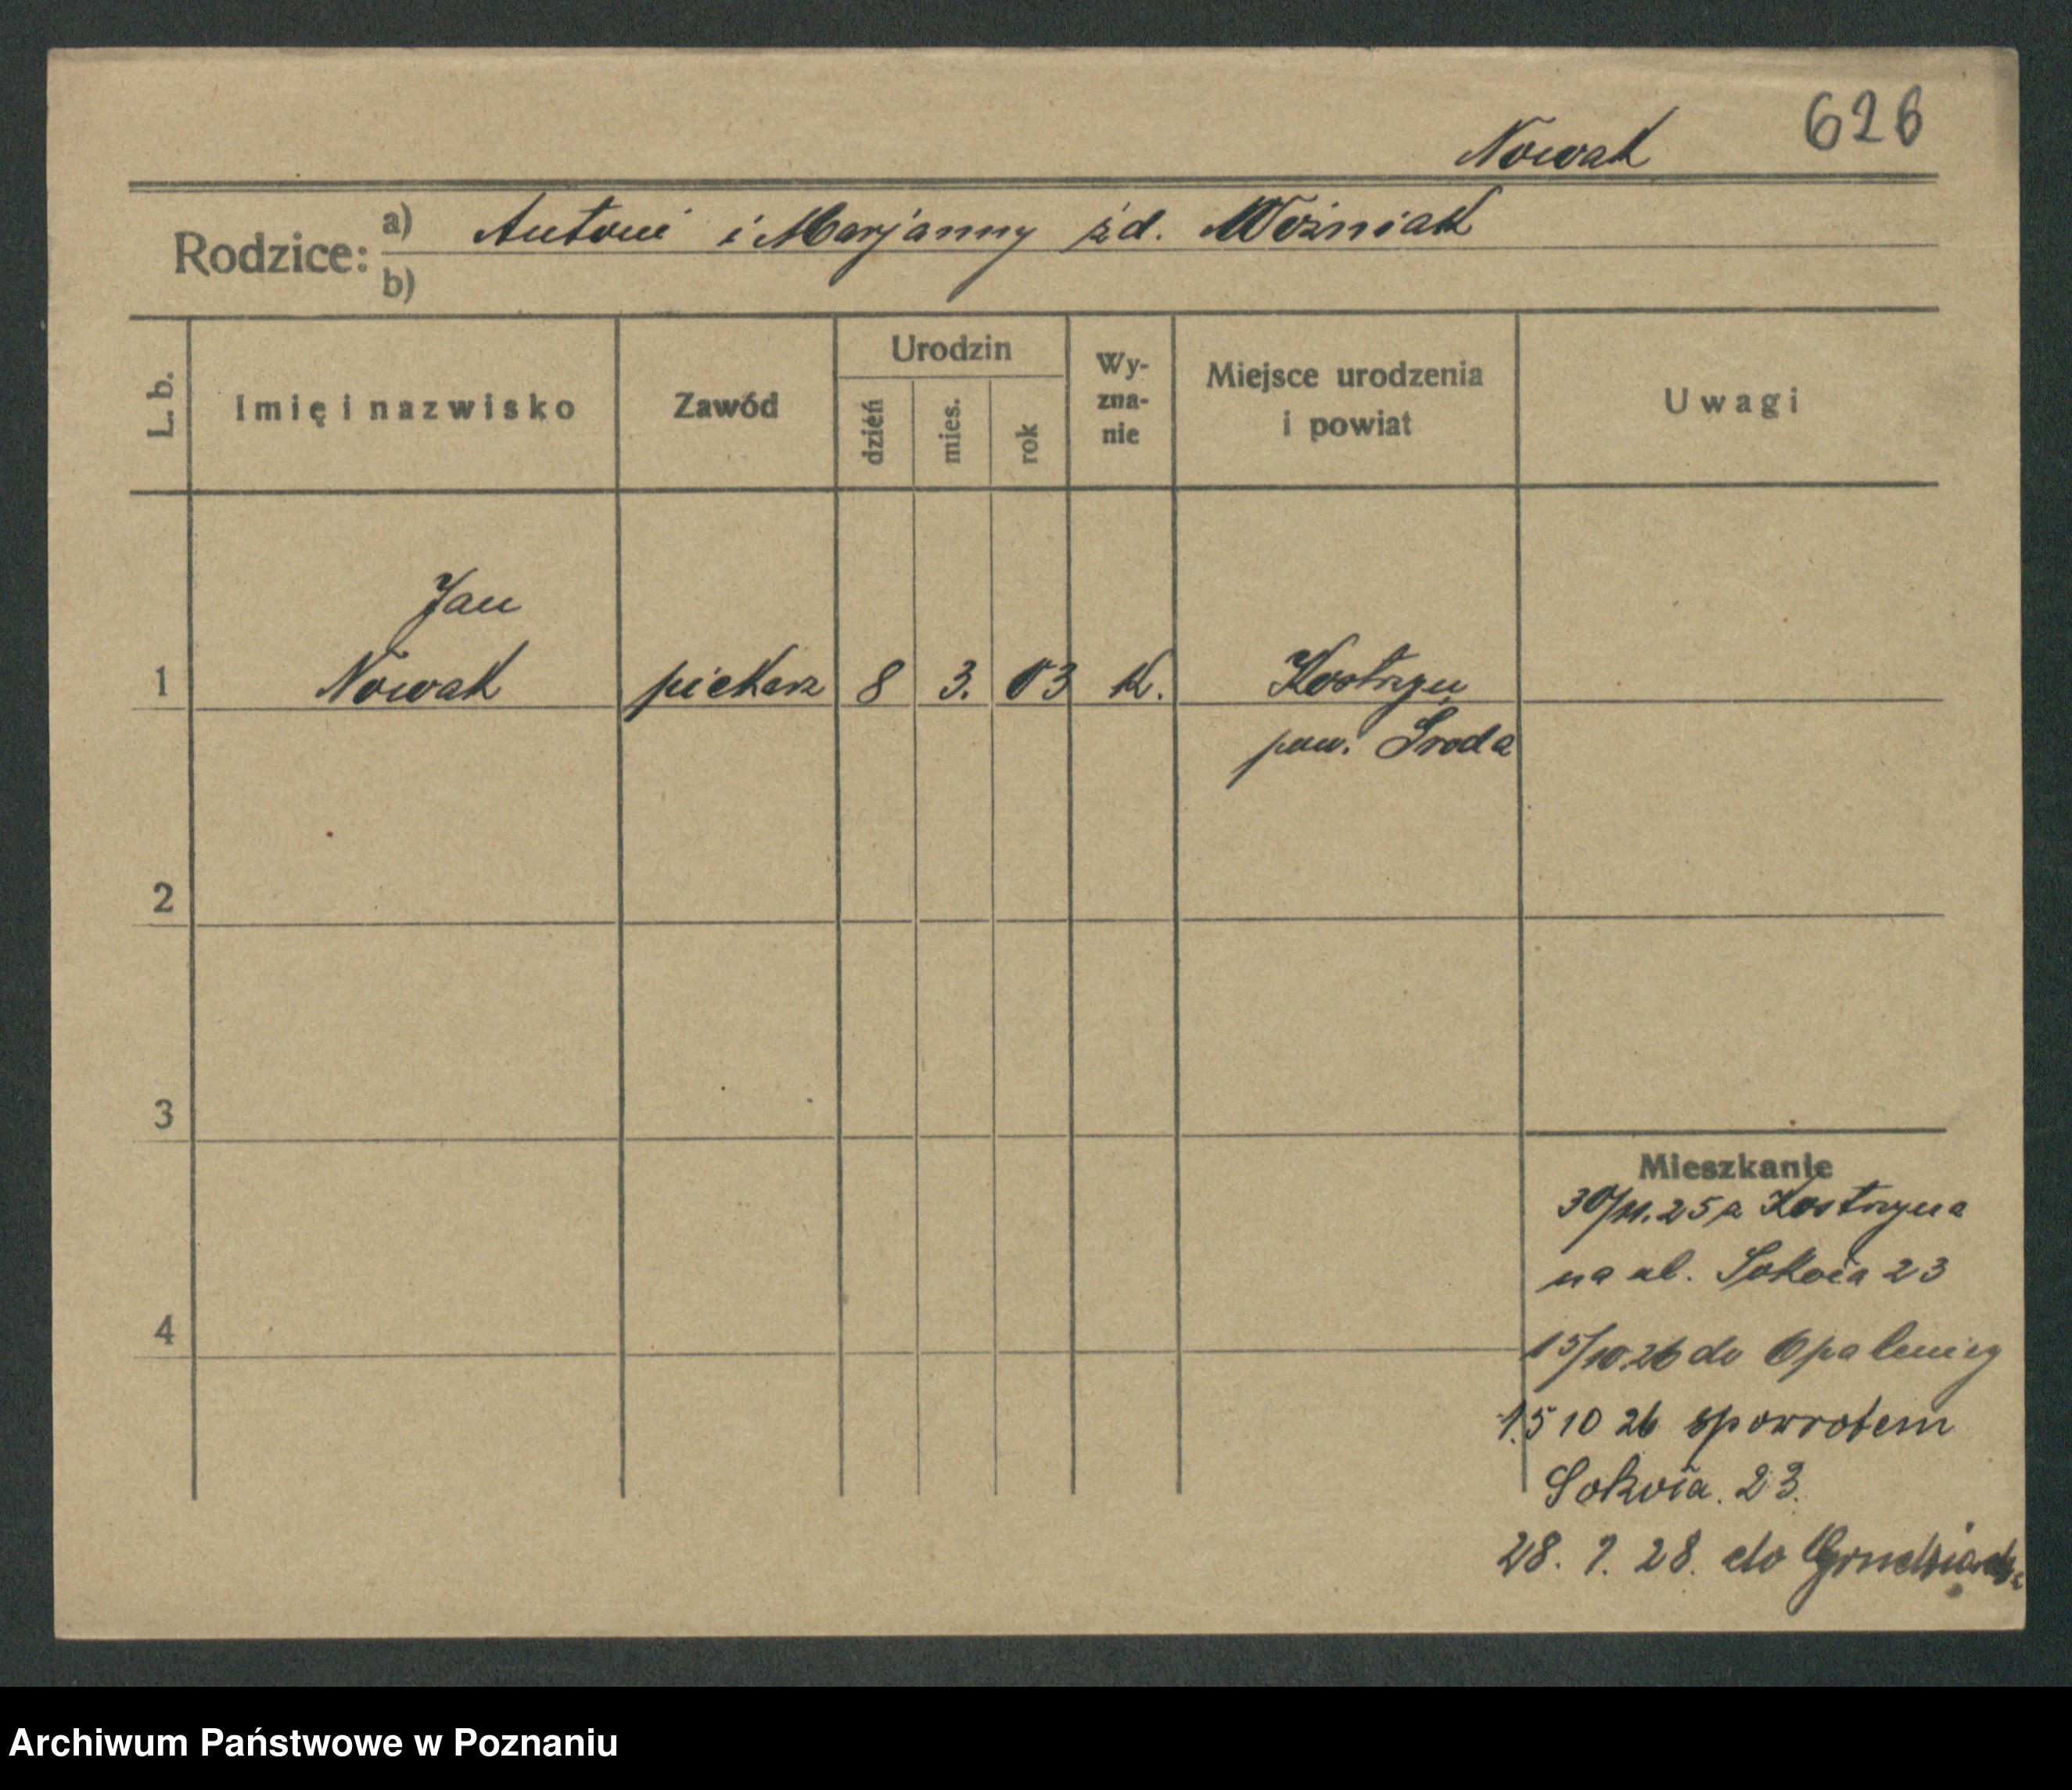 626
Nowak
Rodzice: a) Antoni i Marjanny żd. Woźniak
b)
L. b.
Imię i nazwisko
Zawód
Urodzin
dzień
mies.
rok
Wy-
zna-
nie
Miejsce urodzenia
i powiat
Uwagi
Jan
1 Nowak piekarz 8 3. 03 K. Kostrzyn
pow. Środa
2
3
4
Mieszkanie
30/11.25 z Kostrzyna
na ul.
15/10.26 do Opalenicy
15 10 26 spowrotem
23.
28. 7. 28. do
Archiwum Państwowe w Poznaniu